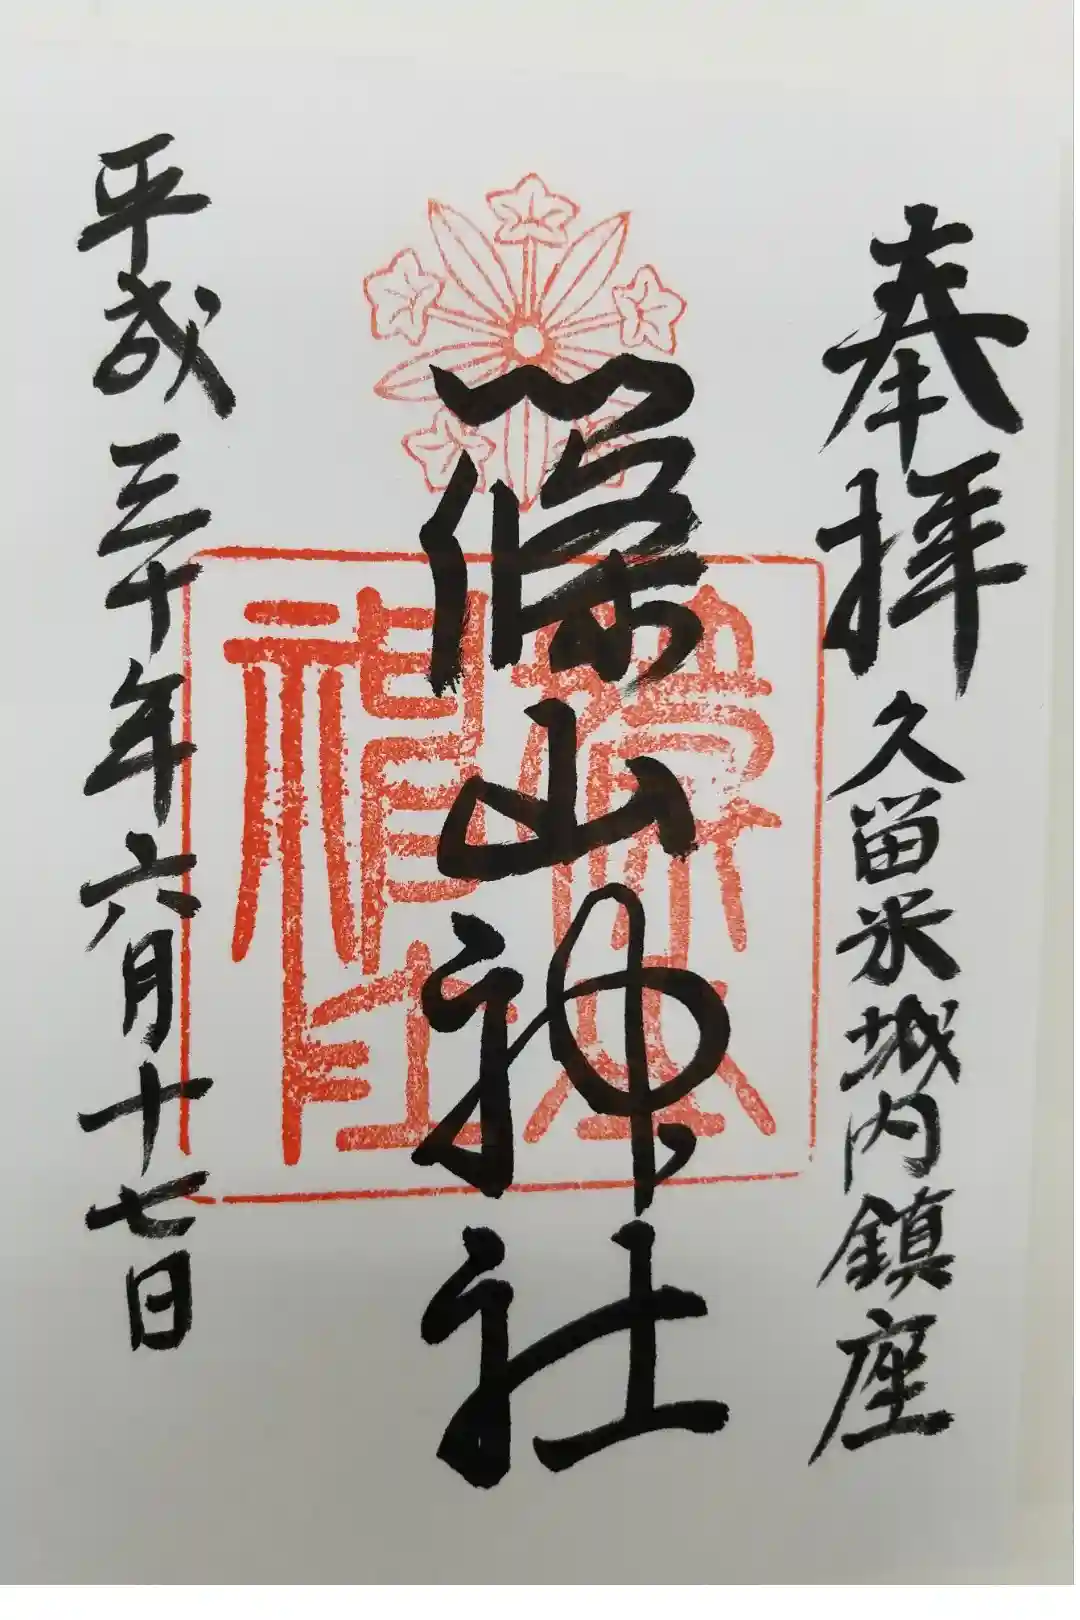 奉拝
久留米城内鎮座
篠山神社
篠山神社
平成三十年六月十七日